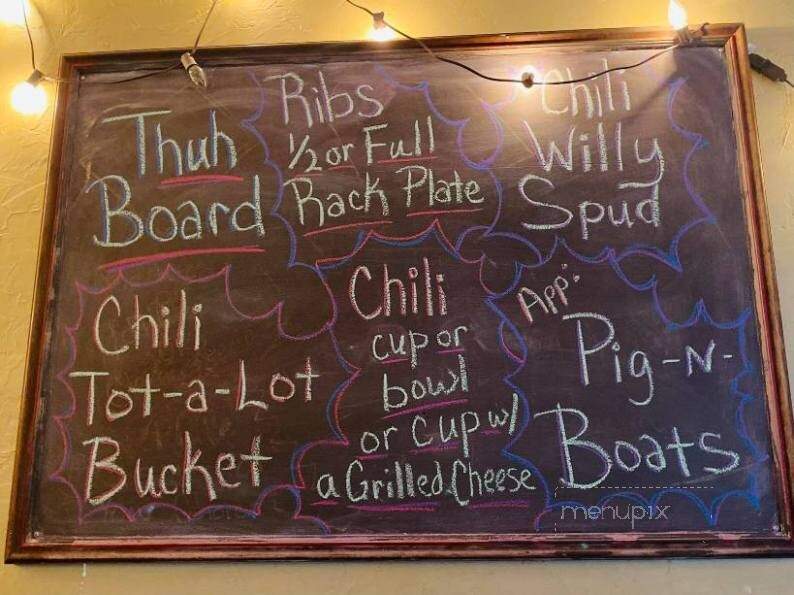 Thuh
Board
Ribs
1/2 or Full
Rack Plate
Chili
Willy
Spud
Chili
Tot-a-Lot
Bucket
Chili
cup or
bowl
or cup w/
a Grilled Cheese
App:
Pig-N-
Boats
menupix